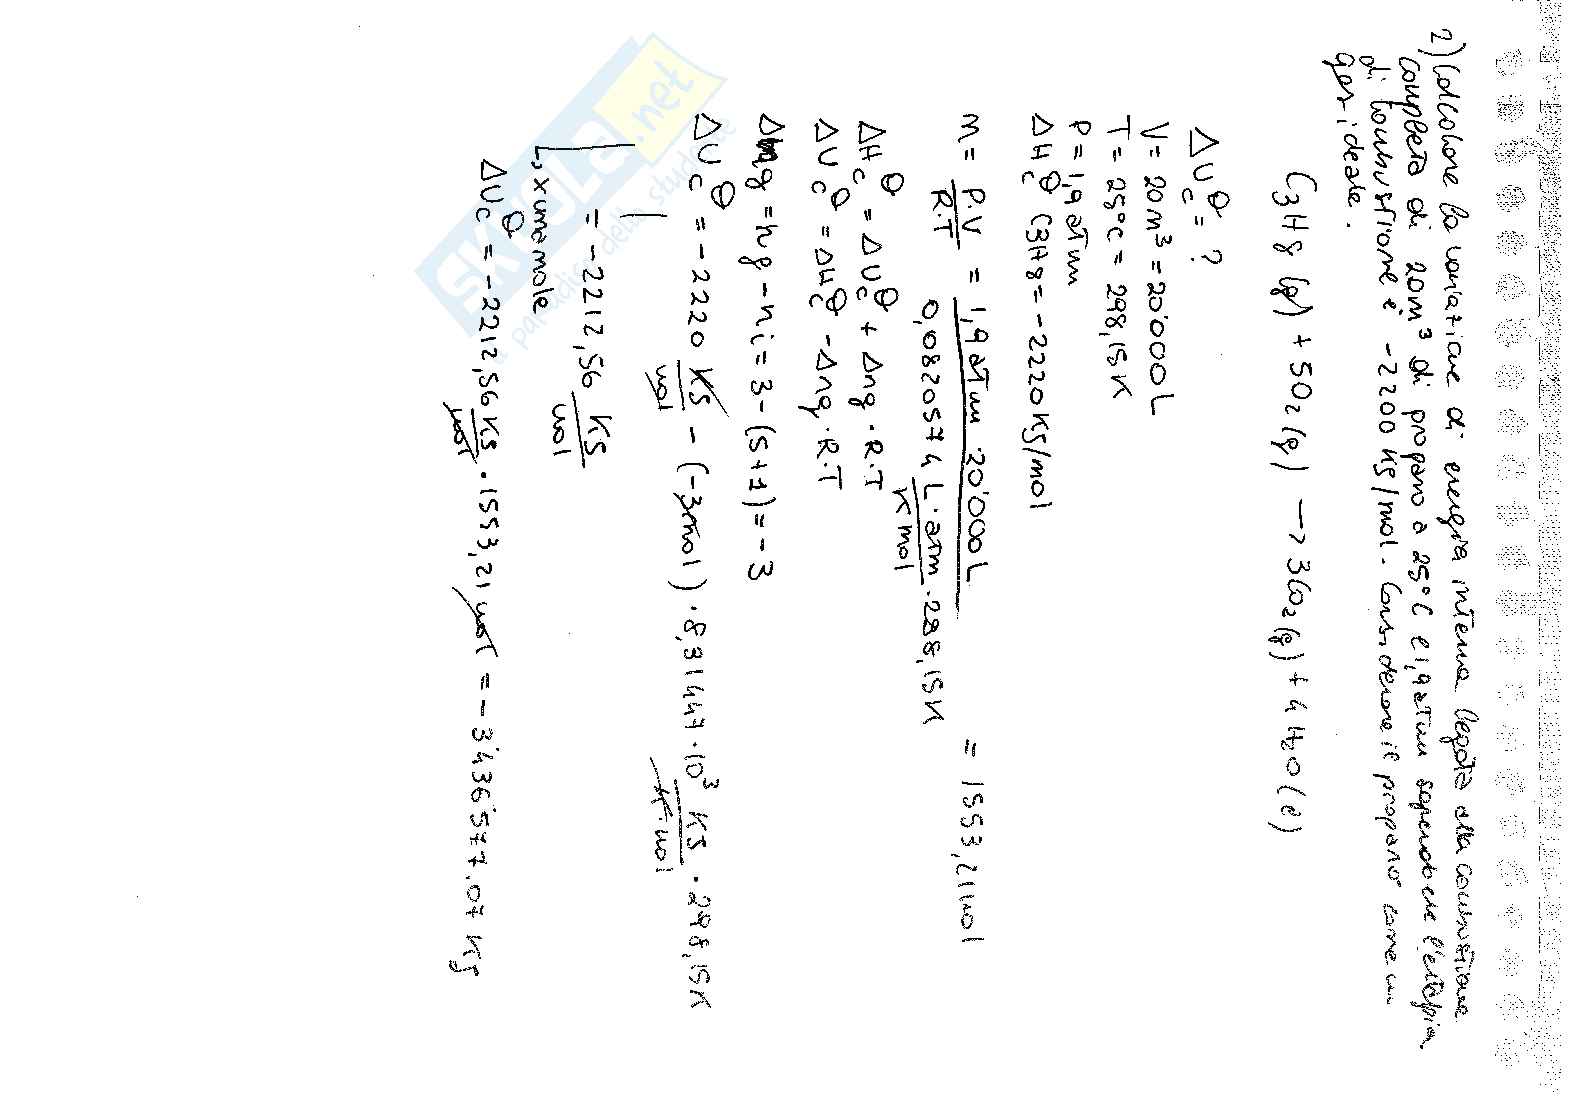 2) Calcolare la variazione di energia interna legata alla combustione
completa di 20m³ di propano a 25°C e 1,9 atm sapendo che l'entalpia
di combustione è -2200 KJ/mol. Considerare il propano come un
gas ideale.
C3H8 (g) + 5O2 (g) → 3CO2 (g) + 4H2O (l)
ΔUc^θ = ?
V = 20m³ = 20'000 L
T = 25°C = 298,15 K
P = 1,9 atm
ΔHc^θ C3H8 = -2220 KJ/mol
n = P·V / R·T = 1,9 atm · 20'000 L / 0,0820574 L·atm / K mol · 298,15 K = 1553,21 mol
ΔHc^θ = ΔUc^θ + Δng · R·T
ΔUc^θ = ΔHc^θ - Δng · R·T
Δng = nf - ni = 3 - (5+1) = -3
ΔUc^θ = -2220 KJ/mol - (-3 mol) · 8,31447 · 10³ KJ / K·mol · 298,15 K
= -2212,56 KJ/mol
↳ x una mole
ΔUc^θ = -2212,56 KJ/mol · 1553,21 mol = -3'436'577,07 KJ
SKUOLA.net
il paradiso dello studente